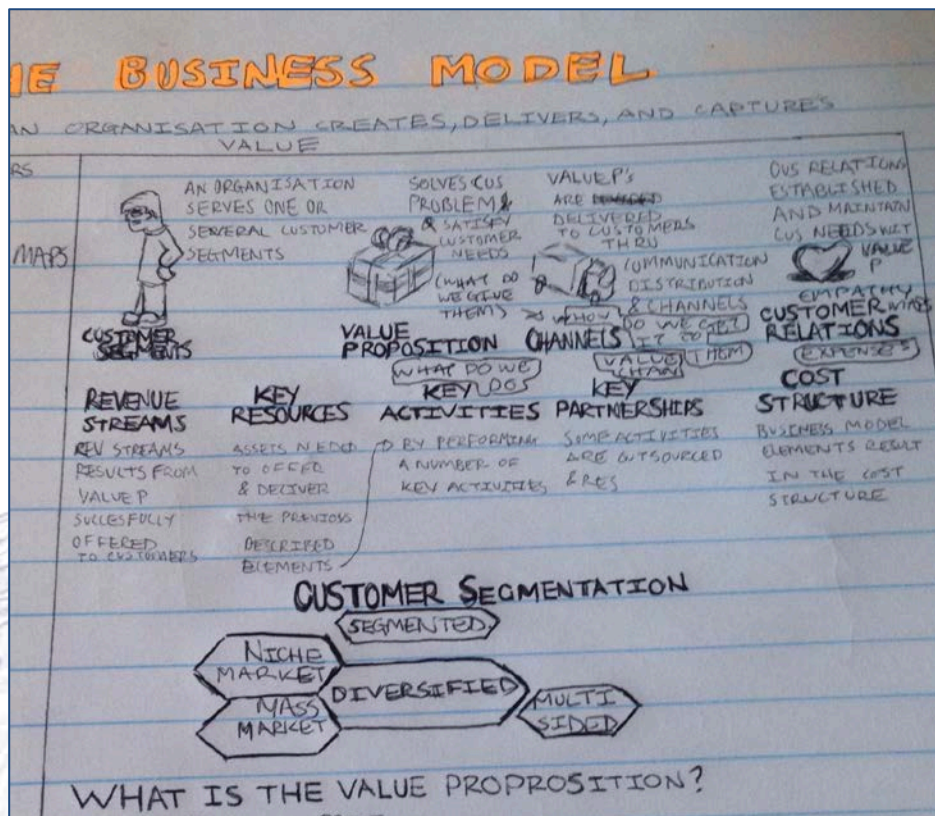 HE BUSINESS MODEL
AN ORGANISATION CREATES, DELIVERS, AND CAPTURES
VALUE
RS
MAPS
AN ORGANISATION
SERVES ONE OR
SERVERAL CUSTOMER
SEGMENTS
CUSTOMER
SEGMENTS
SOLVES CUS
PROBLEM &
& SATISFY
CUSTOMER
NEEDS
(WHAT DO
WE GIVE
THEM
VALUE
PROPOSITION
VALUE P's
ARE
DELIVERED
TO CUSTOMERS
THRU
COMMUNICATION
DISTRIBUTION
& CHANNELS
HOW
DO WE GET
IT TO
THEM
CHANNELS
VALUE
CHAN
CUS RELATIONS
ESTABLISHED
AND MAINTAIN
CUS NEEDS WIT
VALUE
P
EMPATHY
CUSTOMER
RELATIONS
REVENUE
STREAMS
REV STREAMS
RESULTS FROM
VALUE P
SUCCESFULLY
OFFERED
TO CUSTOMERS
KEY
RESOURCES
ASSETS NEEDED
TO OFFER
& DELIVER
THE PREVIOUS
DESCRIBED
ELEMENTS
WHAT DO WE
DO
KEY
ACTIVITIES
BY PERFORMING
A NUMBER OF
KEY ACTIVITIES
KEY
PARTNERSHIPS
SOME ACTIVITIES
ARE OUTSOURCED
& RES
EXPENSES
COST
STRUCTURE
BUSINESS MODEL
ELEMENTS RESULT
IN THE COST
STRUCTURE
CUSTOMER SEGMENTATION
SEGMENTED
NICHE
MARKET
DIVERSIFIED
MASS
MARKET
MULTI
SIDED
WHAT IS THE VALUE PROPROSITION?